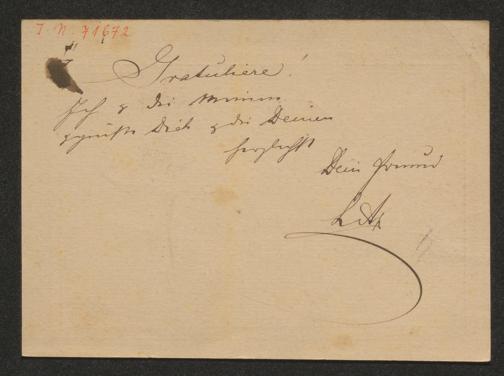 I. N. 71672
Gratuliere!
Ich & die Meinen
grüßen Dich & die Deinen
herzlichst
Dein Freund